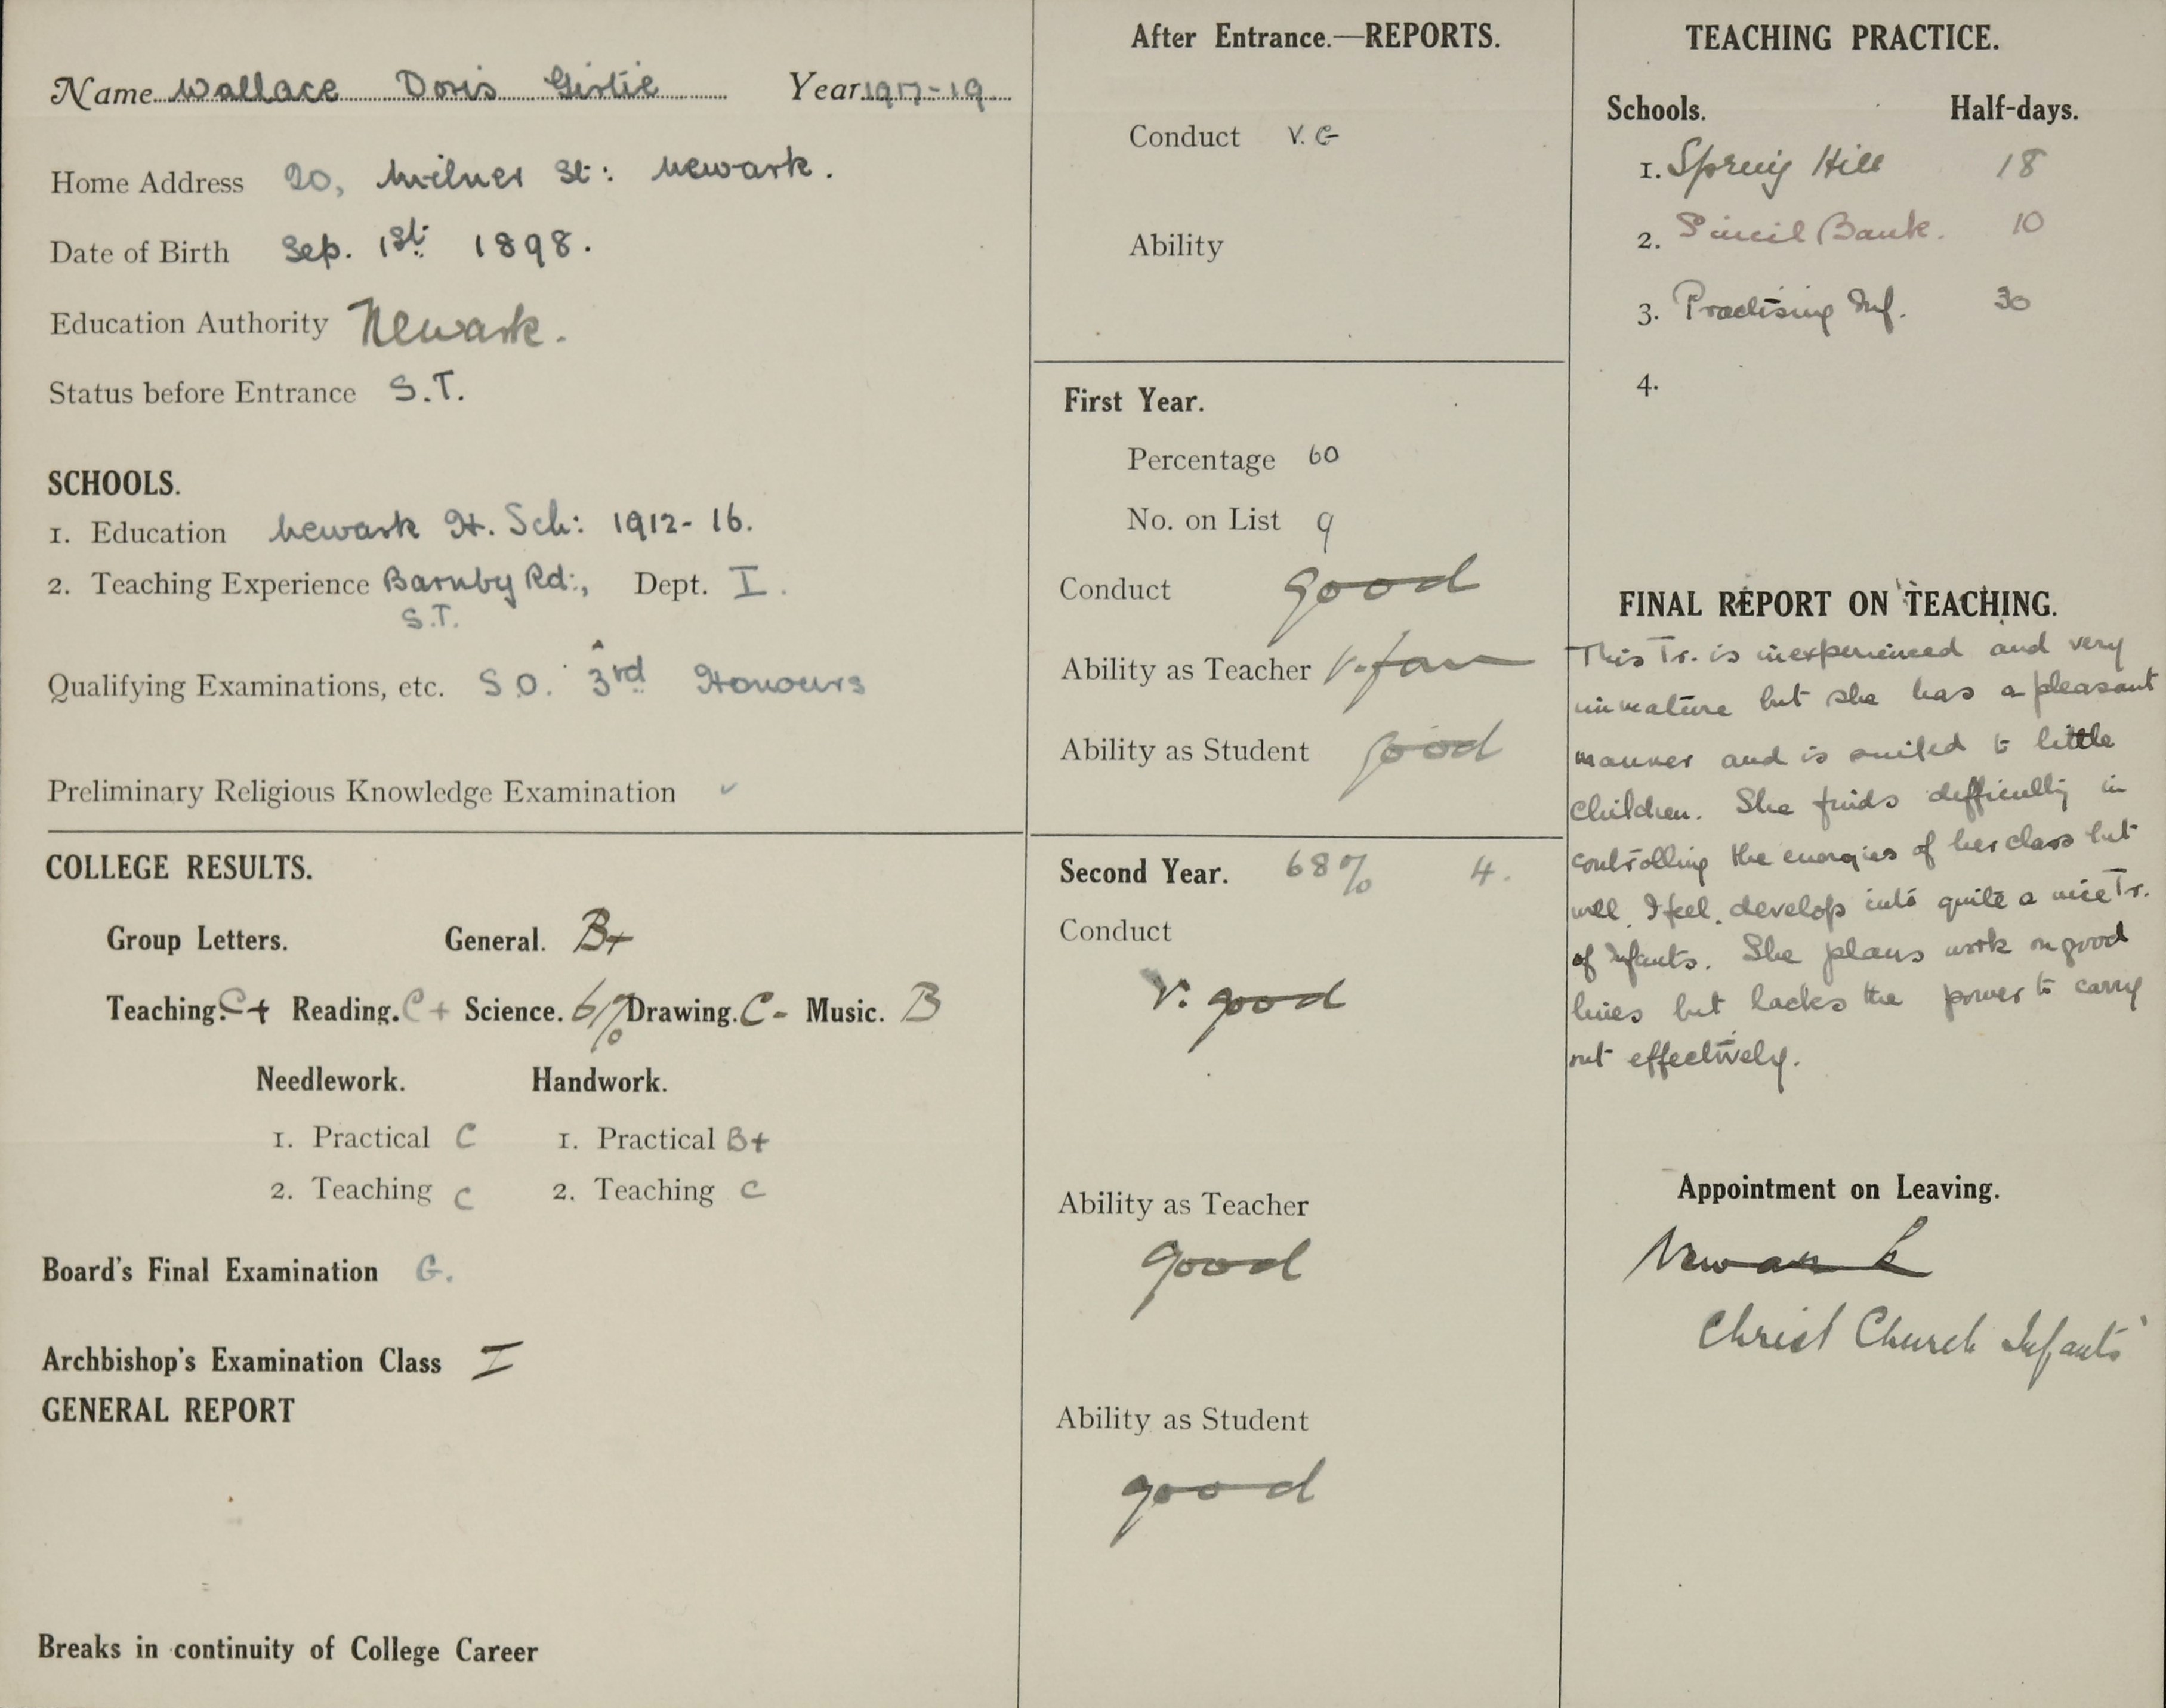 Name Wallace Doris Girlie Year 1917-19
Home Address 20, Milner St: Newark.
Date of Birth Sep. 1st 1898.
Education Authority Newark.
Status before Entrance S.T.
SCHOOLS.
1. Education Newark H. Sch: 1912-16.
2. Teaching Experience Barnby Rd:, Dept. I.
S.T.
Qualifying Examinations, etc. S.O. 3rd Honours
Preliminary Religious Knowledge Examination ✓
COLLEGE RESULTS.
Group Letters. General. B+
Teaching. C+ Reading. C+ Science. 61% Drawing. C- Music. B
Needlework. Handwork.
1. Practical C 1. Practical B+
2. Teaching C 2. Teaching C
Board's Final Examination G.
Archbishop's Examination Class I
GENERAL REPORT
Breaks in continuity of College Career
After Entrance.—REPORTS.
Conduct V.G
Ability
First Year.
Percentage 60
No. on List 9
Conduct good
Ability as Teacher V. fair
Ability as Student good
Second Year. 68% 4.
Conduct
V. good
Ability as Teacher
good
Ability as Student
good
TEACHING PRACTICE.
Schools. Half-days.
1. Spring Hill 18
2. Sincil Bank. 10
3. Practising Inf. 30
4.
FINAL REPORT ON TEACHING.
This Tr. is inexperienced and very
immature but she has a pleasant
manner and is suited to little
children. She finds difficulty in
controlling the energies of her class but
will, I feel, develop into quite a nice Tr.
of Infants. She plans work on good
lines but lacks the power to carry
out effectively.
Appointment on Leaving.
Newark
Christ Church Infants'